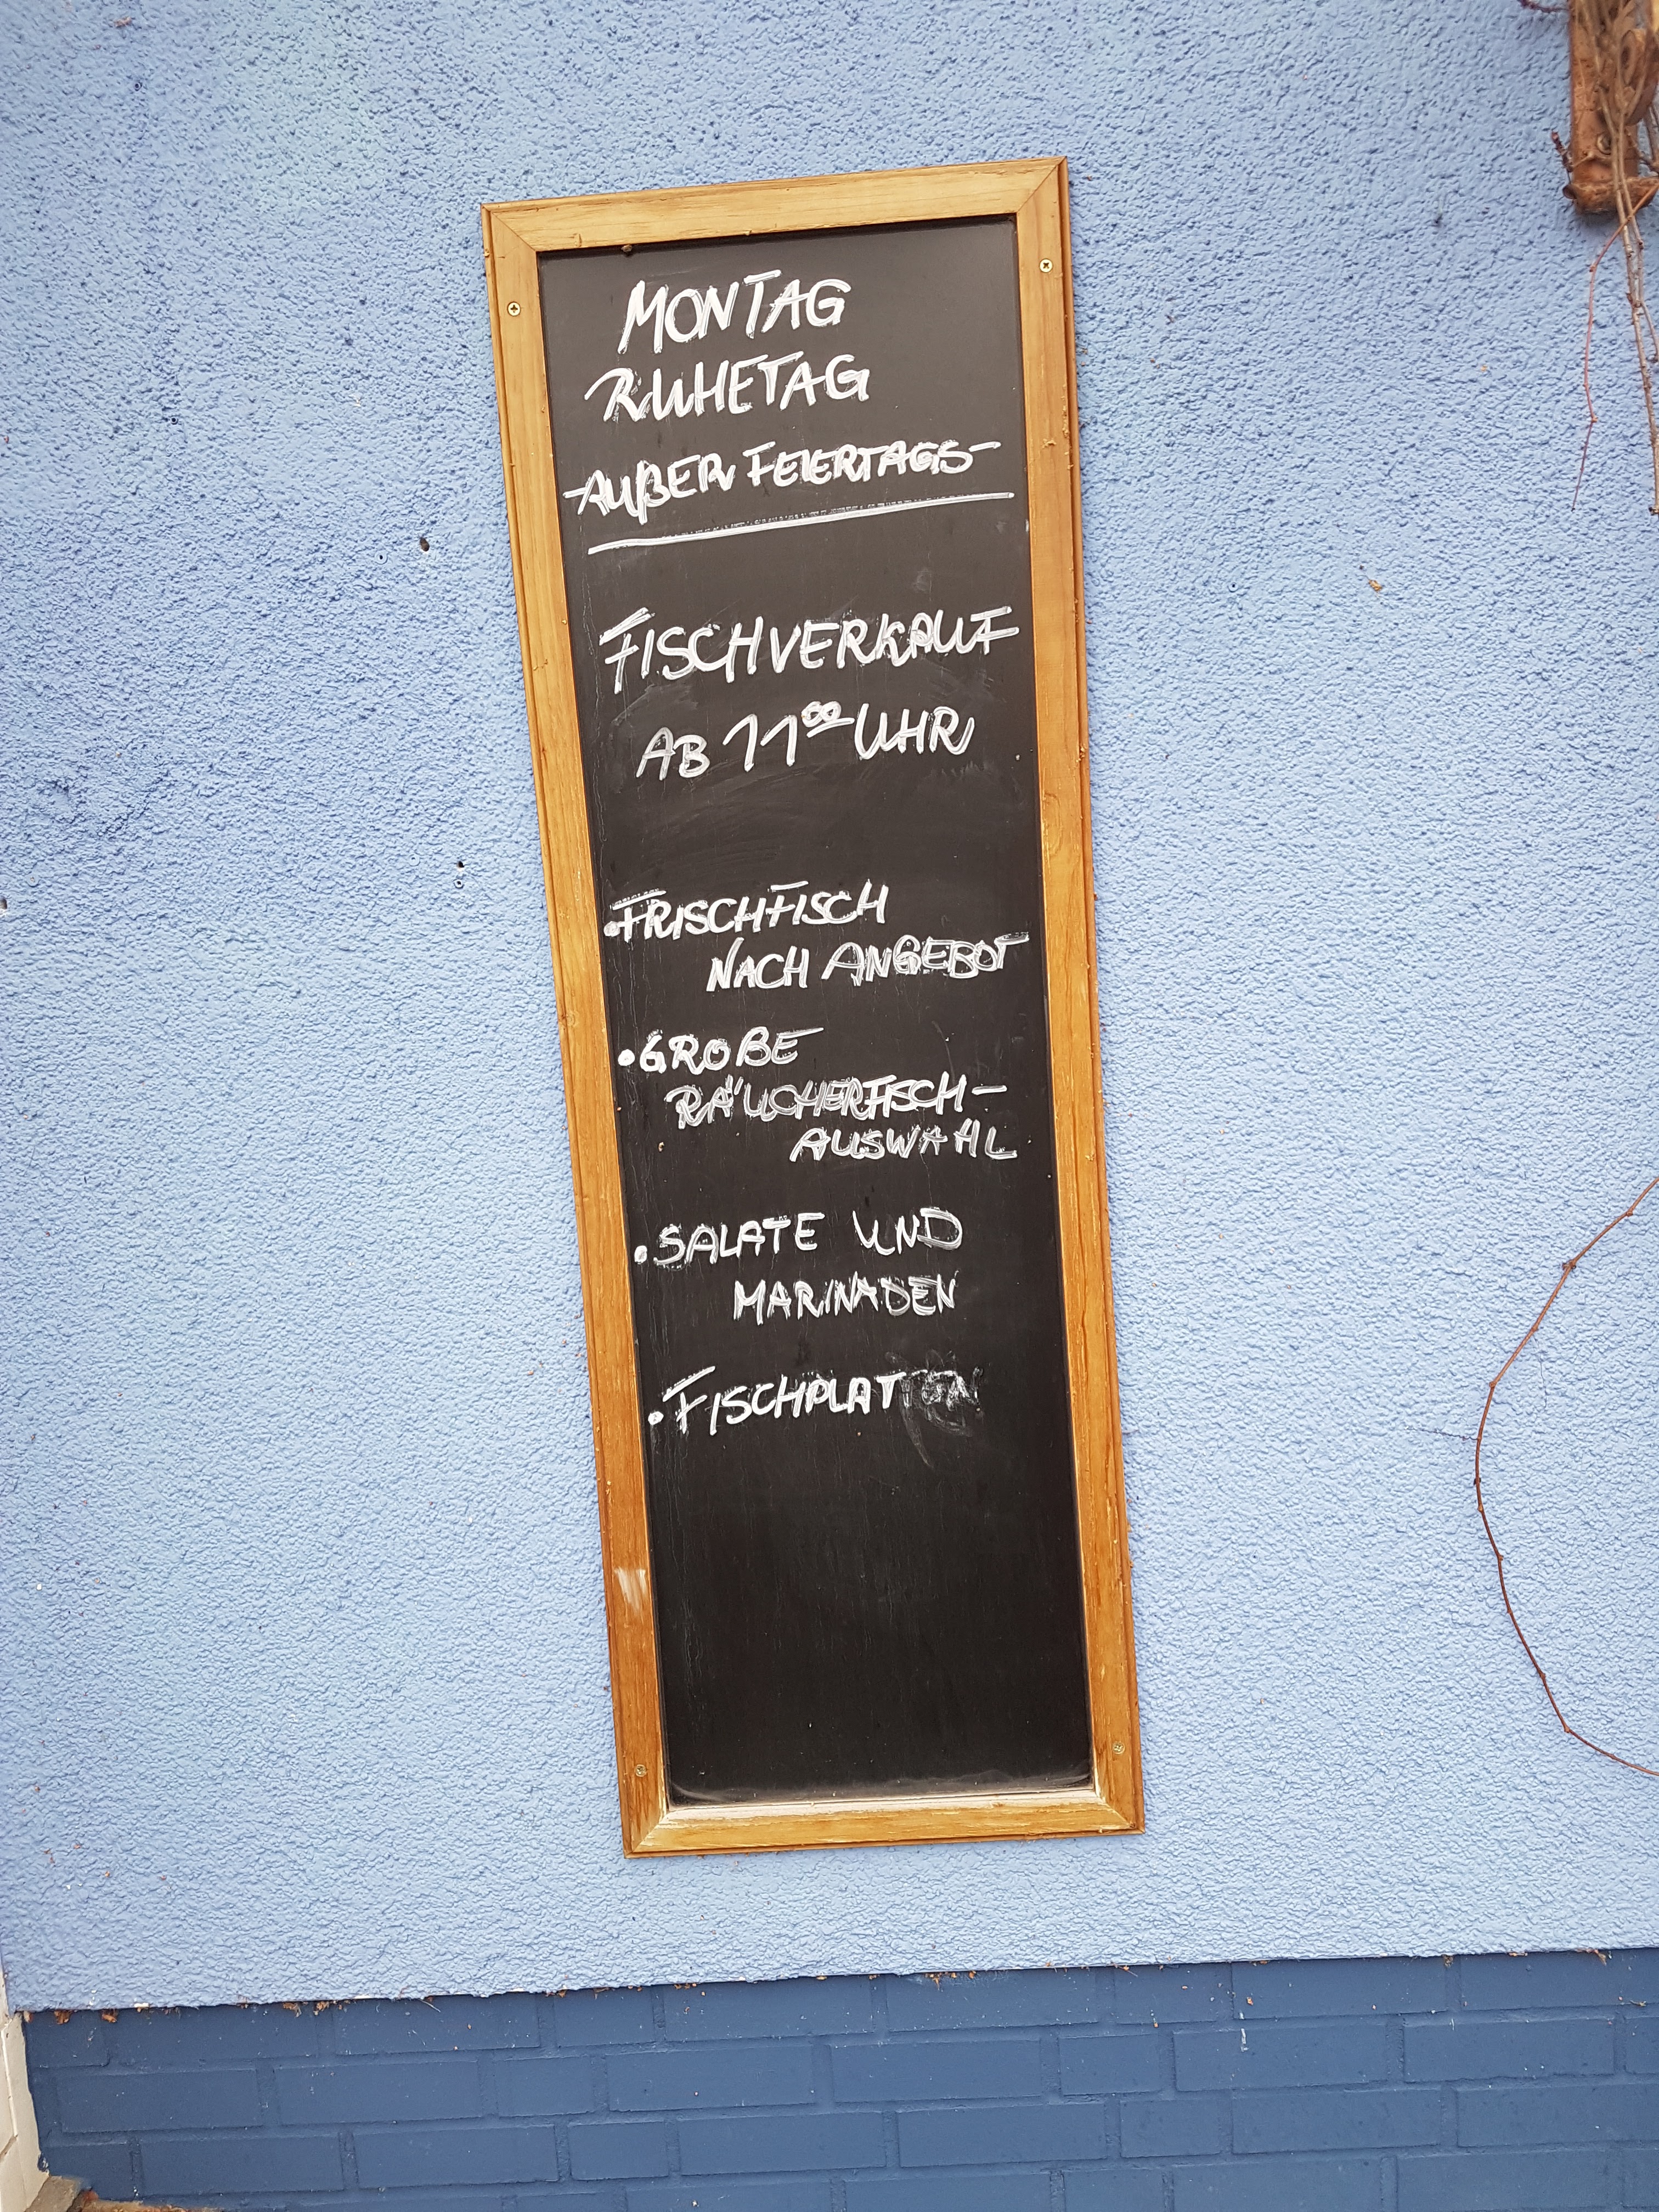 MONTAG
RUHETAG
-AUßER FEIERTAGS-
FISCHVERKAUF
AB 11⁰⁰ UHR
•FRISCHFISCH
NACH ANGEBOT
•GROßE
RÄUCHERFISCH-
AUSWAHL
•SALATE UND
MARINADEN
•FISCHPLATTEN